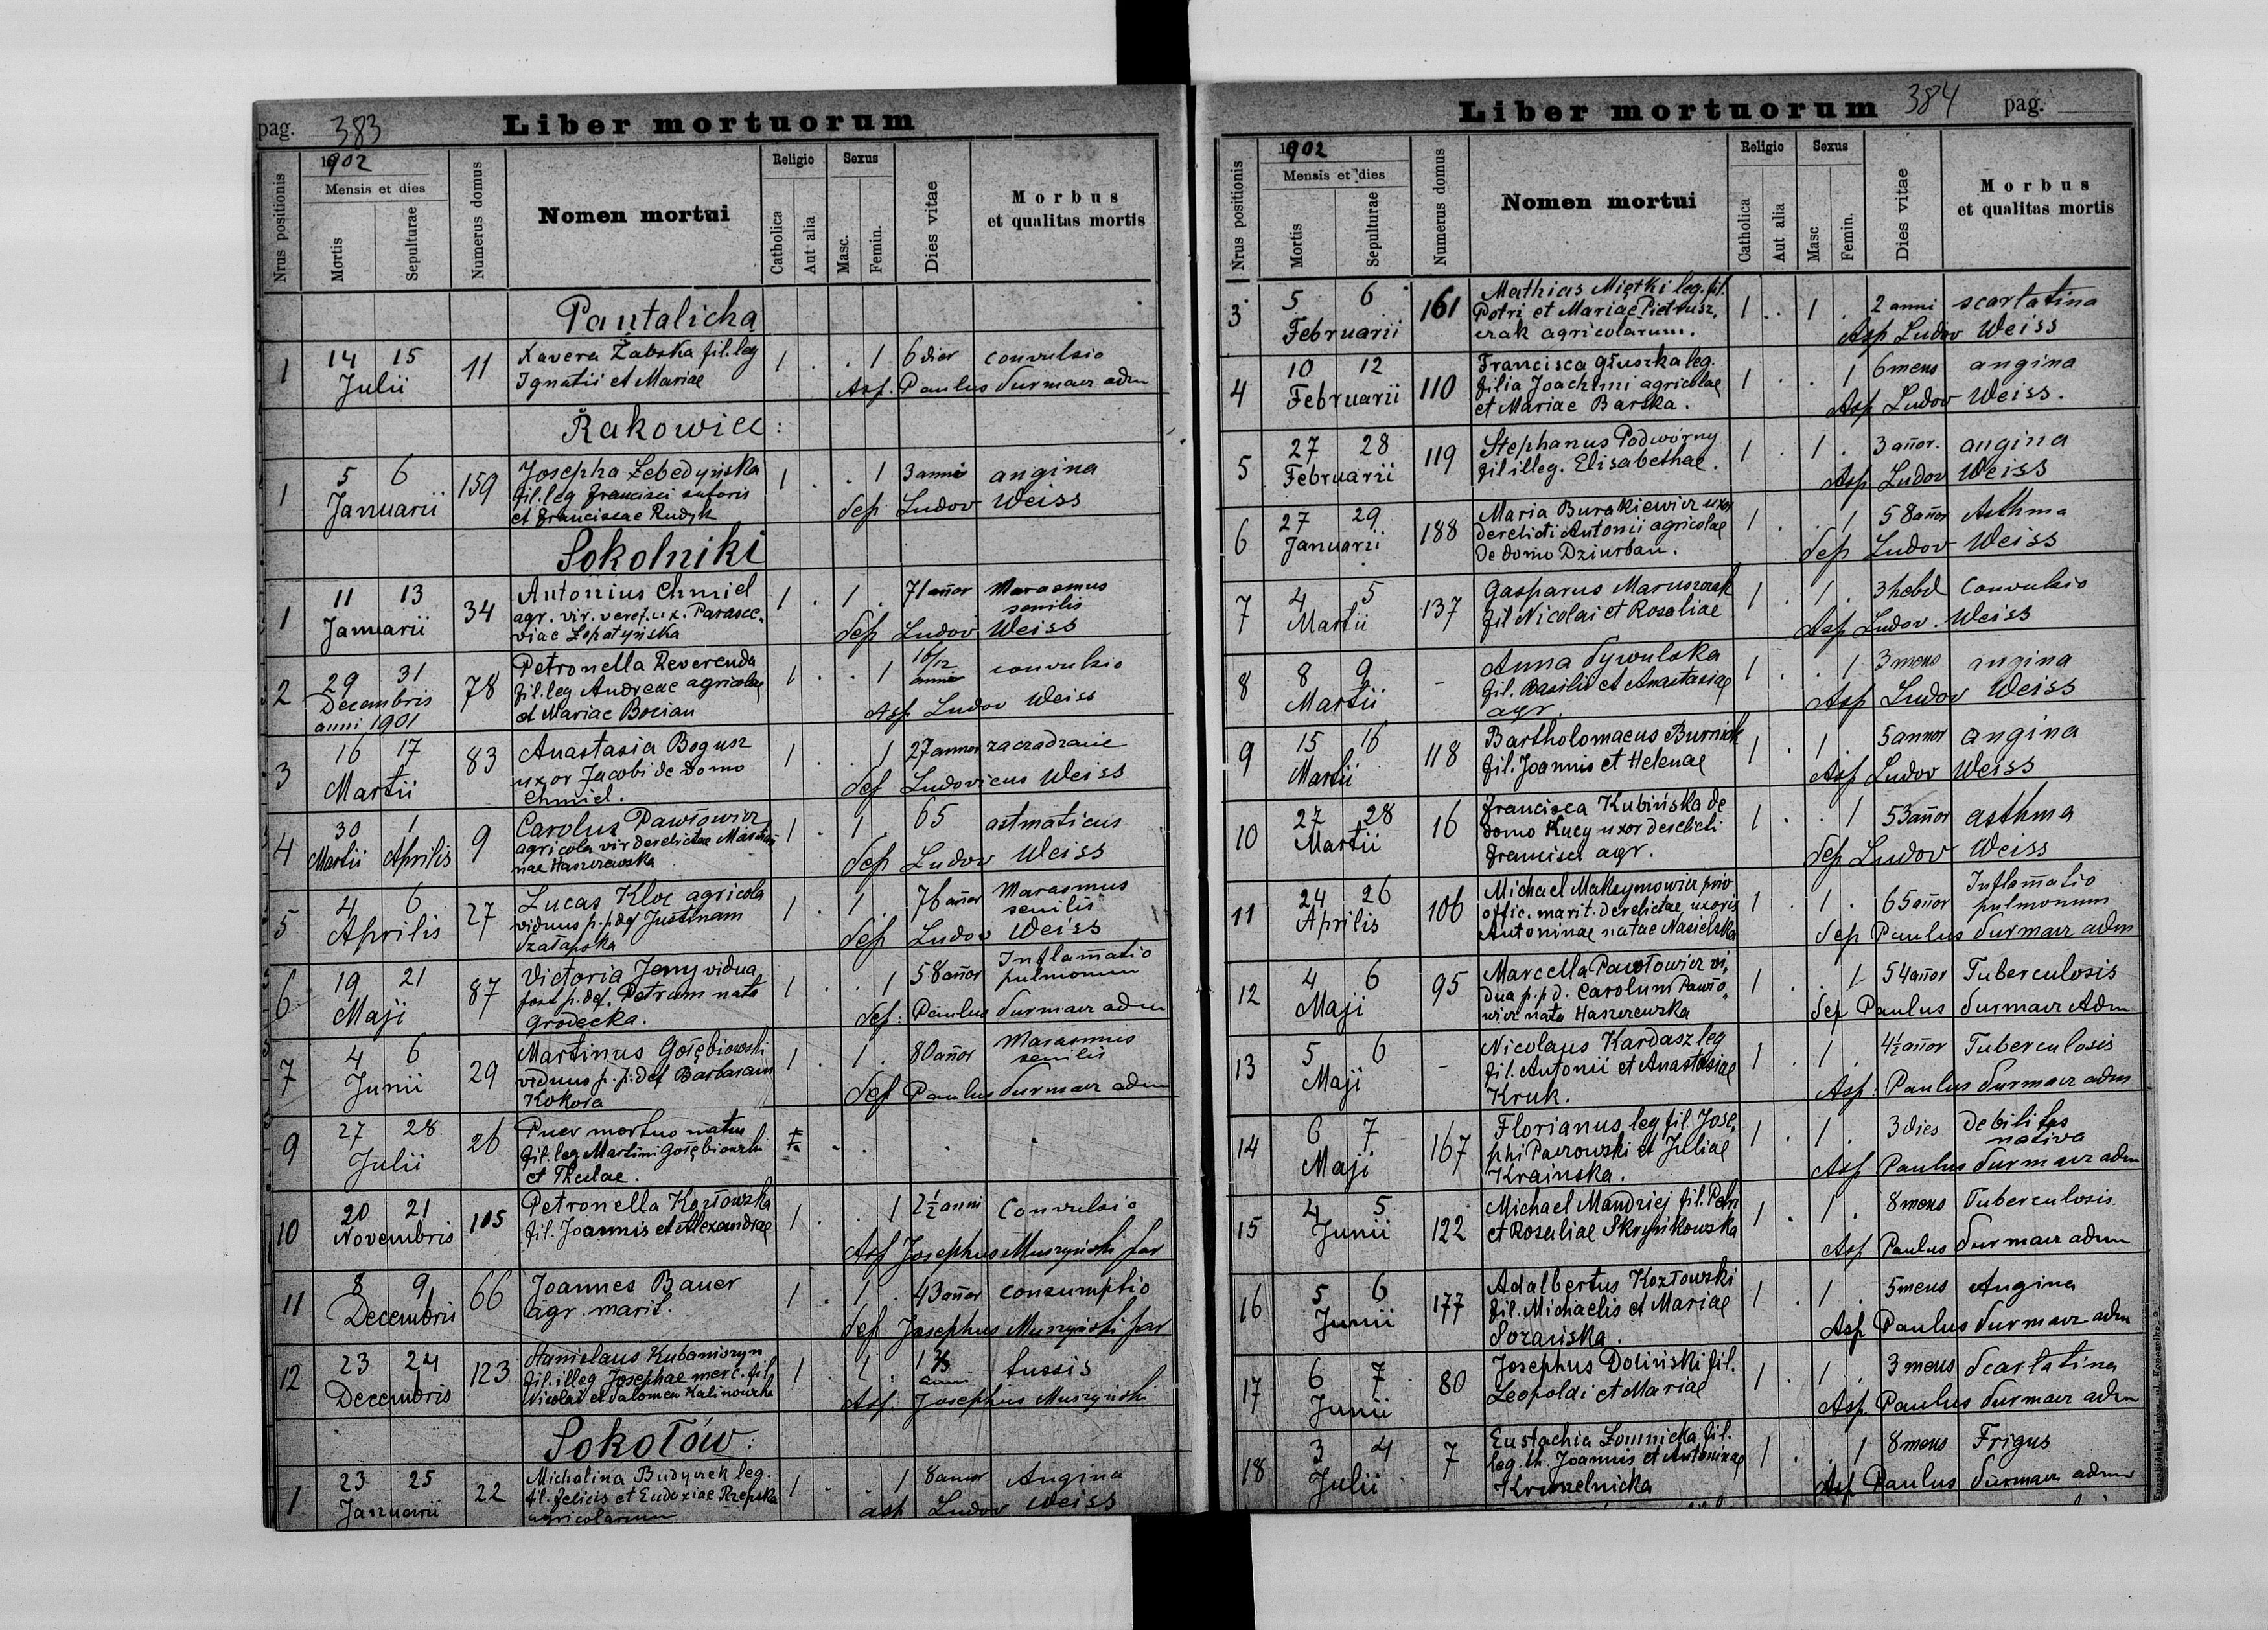 pag. 383 Liber mortuorum
Nrus positionis
1902
Mensis et dies
Mortis
Sepulturae
Numerus domus
Nomen mortui
Religio
Catholica
Aut alia
Sexus
Masc.
Femin.
Dies vitae
Morbus
et qualitas mortis
Pantalicha
1 14 15 11 Xavera Żabska fil. leg 1 . . 1 6 dier convulsio
Julii Ignatii et Mariae
Asp. Paulus Surmacz adm
Rakowiec:
1 5 6 159 Josepha Lebedyńska 1 . . 1 3 annis angina
Januarii fil. leg Francisci sutoris
et Franciscae Rudyk
Sep Ludov Weiss
Sokolniki
1 11 13 34 Antonius Chmiel 1 . 1 . 71 añor Marasmus
senilis
Januarii agr. vir. Parasce,
viae Łopatyńska
Sep Ludov Weiss
2 29 31 78 Petronella Reverenda 1 . . 1 convulsio
Decembris fil. leg Andreae agricolae
anni 1901 et Mariae Bocian
Asp Ludov Weiss
3 16 17 83 Anastasia Bogusz 1 . . 1 27 annor zaczadzenie
Martii uxor Jacobi de domo
Chmiel.
Sep Ludovicus Weiss
4 30 1 9 Carolus Pawłowicz 1 . 1 . 65 astmaticus
Martii Aprilis agricola vir derelictae
nae Haszczewska
Sep Ludov Weiss
5 4 6 27 Lucas Kloc agricola 1 . 1 76 añor Marasmus
senilis
Aprilis viduus p. p. def Justinam
Szałapska
Sep Ludov Weiss
6 19 21 87 Victoria Jemy vidua 1 . . 1 58 añor Inflam̃atio
pulmonum
Maji post p. def. Petrum nata
Grodecka.
Sep: Paulus Surmacz adm
7 4 6 29 Martinus Gołębiowski 1 . 1 . 80 añor Marasmus
senilis
Junii viduus p. p. def Barbaram
Kokosa
Sep Paulus Surmacz adm
9 27 28 26 Puer mortuo natus
Julii fil. leg Martini Gołębiowski
et Theclae.
10 20 21 105 Petronella Kozłowska 1 . . 1 2½ anni Convulsio
Novembris fil. Joannis et Alexandrae
Asp Josephus Muszyński par
11 8 9 66 Joannes Bauer 1 . 1 . 43 añor consumptio
Decembris agr. marit.
Sep Josephus Muszyński par
12 23 24 123 Stanislaus Kubaniszyn 1 . 1 . anni tussis
Decembris fil. illeg Josephae merc. fil
Nicolai et Salomea Kalinowska
Asp. Josephus Muszyński
Sokołów:
1 23 25 22 Michalina Budyczek leg. 1 . . 1 8 annor Angina
Januarii fil. Felicis et Eudoxiae Rzepska
agricolarum
asp Ludov Weiss
Liber mortuorum 384 pag.
Nrus positionis
1902
Mensis et dies
Mortis
Sepulturae
Numerus domus
Nomen mortui
Religio
Catholica
Aut alia
Sexus
Masc
Femin.
Dies vitae
Morbus
et qualitas mortis
3 5 6 161 Mathias Miętki leg. fil. 1 . 1 . 2 anni scarlatina
Februarii Petri et Mariae Pietrusz,
czak agricolarum.
Asp Ludov Weiss
4 10 12 110 Francisca Głuszka leg. 1 . . 1 6 mens angina
Februarii filia Joachimi agricolae
et Mariae Barska.
Asp Ludov Weiss.
5 27 28 119 Stephanus Podwórny 1 . 1 . 3 añor. angina
Februarii fil illeg. Elisabethae.
Asp Ludov Weiss
6 27 29 188 Maria Burakiewicz uxor 1 . . 1 58 añor Asthma
Januarii derelicti Antonii agricolae
de domo Dziurban.
Sep Ludov Weiss
7 4 5 137 Gasparus Maruszczak 1 . 1 . 3 hebd Convulsio
Martii fil Nicolai et Rosaliae
Asp Ludov. Weiss
8 8 9 - Anna Sywulska 1 . . 1 3 mens angina
Martii fil. Basilii et Anastasiae
agr.
Asp Ludov Weiss
9 15 16 118 Bartholomaeus Burniak 1 . 1 . 5 annor angina
Martii fil. Joannis et Helenae
Asp Ludov Weiss
10 27 28 16 Francisca Kubińska de 1 . . 1 53 añor asthma
Martii domo Kucy uxor derelicti
Francisci agr.
Sep Ludov Weiss
11 24 26 106 Michael Maksymowicz priv 1 . 1 . 65 añor Inflam̃atio
pulmonum
Aprilis offic. marit. derelictae uxoris
Antoninae natae Nasielska
Sep Paulus Surmacz adm
12 4 6 95 Marcella Pawłowicz vi, 1 . . 1 54 añor Tuberculosis
Maji dua p. p d. Carolum Pawło,
wicz nata Haszczewska
Sep Paulus Surmacz Adm
13 5 6 - Nicolaus Kardasz leg 1 . 1 . 4½ añor Tuberculosis
Maji fil. Antonii et Anastasiae
Kruk.
Asp: Paulus Surmacz adm
14 6 7 167 Florianus leg fil. Jose, 1 . 1 . 3 dies Debilitas
nativa
Maji phi Paczowski et Juliae
Krainska.
Asp Paulus Surmacz adm
15 4 5 122 Michael Mandziej fil. Petri 1 . 1 . 8 mens Tuberculosis
Junii et Rosaliae Skrynikowska
Asp Paulus Surmacz adm
16 5 6 177 Adalbertus Kozłowski 1 . 1 . 5 mens Angina
Junii fil. Michaelis et Mariae
Sozańska.
Asp Paulus Surmacz adm
17 6 7 80 Josephus Doliński fil. 1 . 1 . 3 mens Scarlatina
Junii Leopoldi et Mariae
Asp Paulus Surmacz adm
18 3 4 7 Eustachia Łomnicka fil. 1 . . 1 8 mens Frigus
Julii leg. th. Joannis et Antoninae
Kruszelnicka
Asp Paulus Surmacz adm